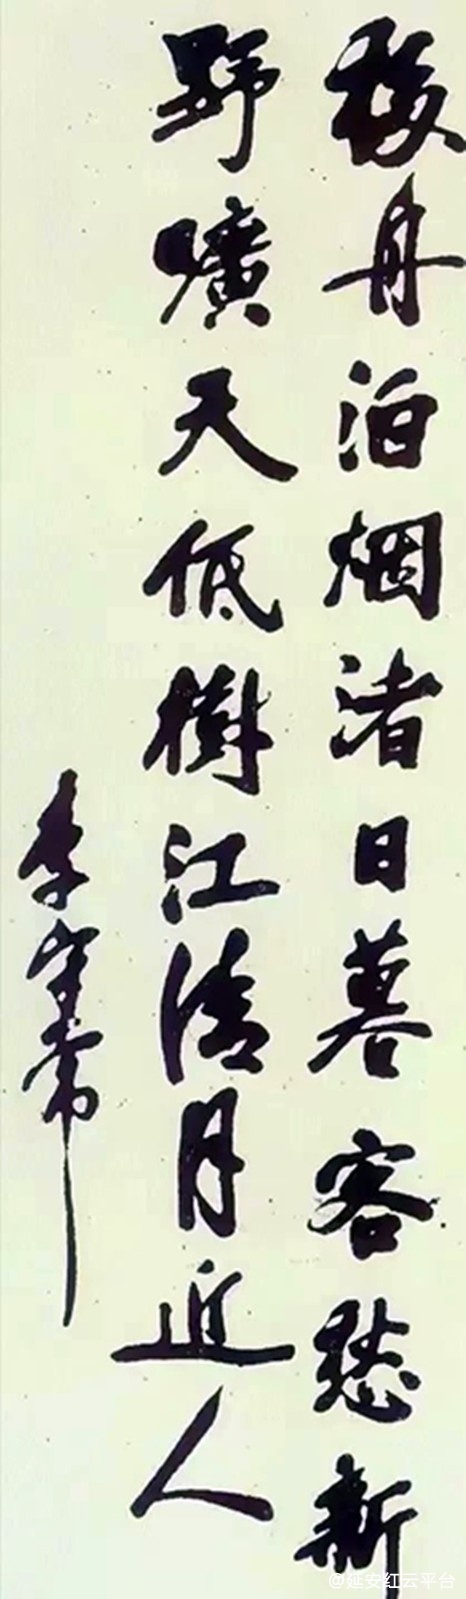 移舟泊烟渚日暮客愁新
野曠天低樹江清月近人
李守常
@延安红云平台